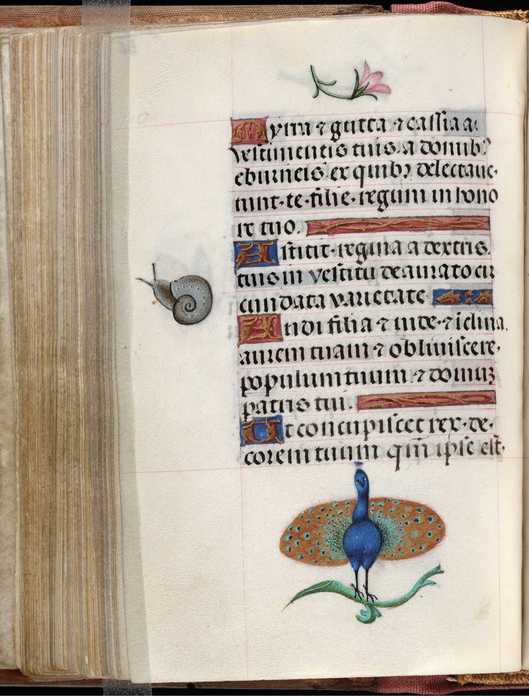 Myrra ⁊ gutta ⁊ cassia a
vestimentis tuis. a domibꝰ
eburneis ex quibꝰ delectave·
runt· te· filie· regum in hono
re tuo.
Astitit· regina a dextris.
tuis in vestitu deaurato cir
cumdata varietate
Audi filia ⁊ vide· ⁊ iclina.
aurem tuam ⁊ obliviscere·
populum tuum ⁊ domuꝫ
patris tui.
Et concupiscet rex· de·
corem tuum qm̄ ipse est·